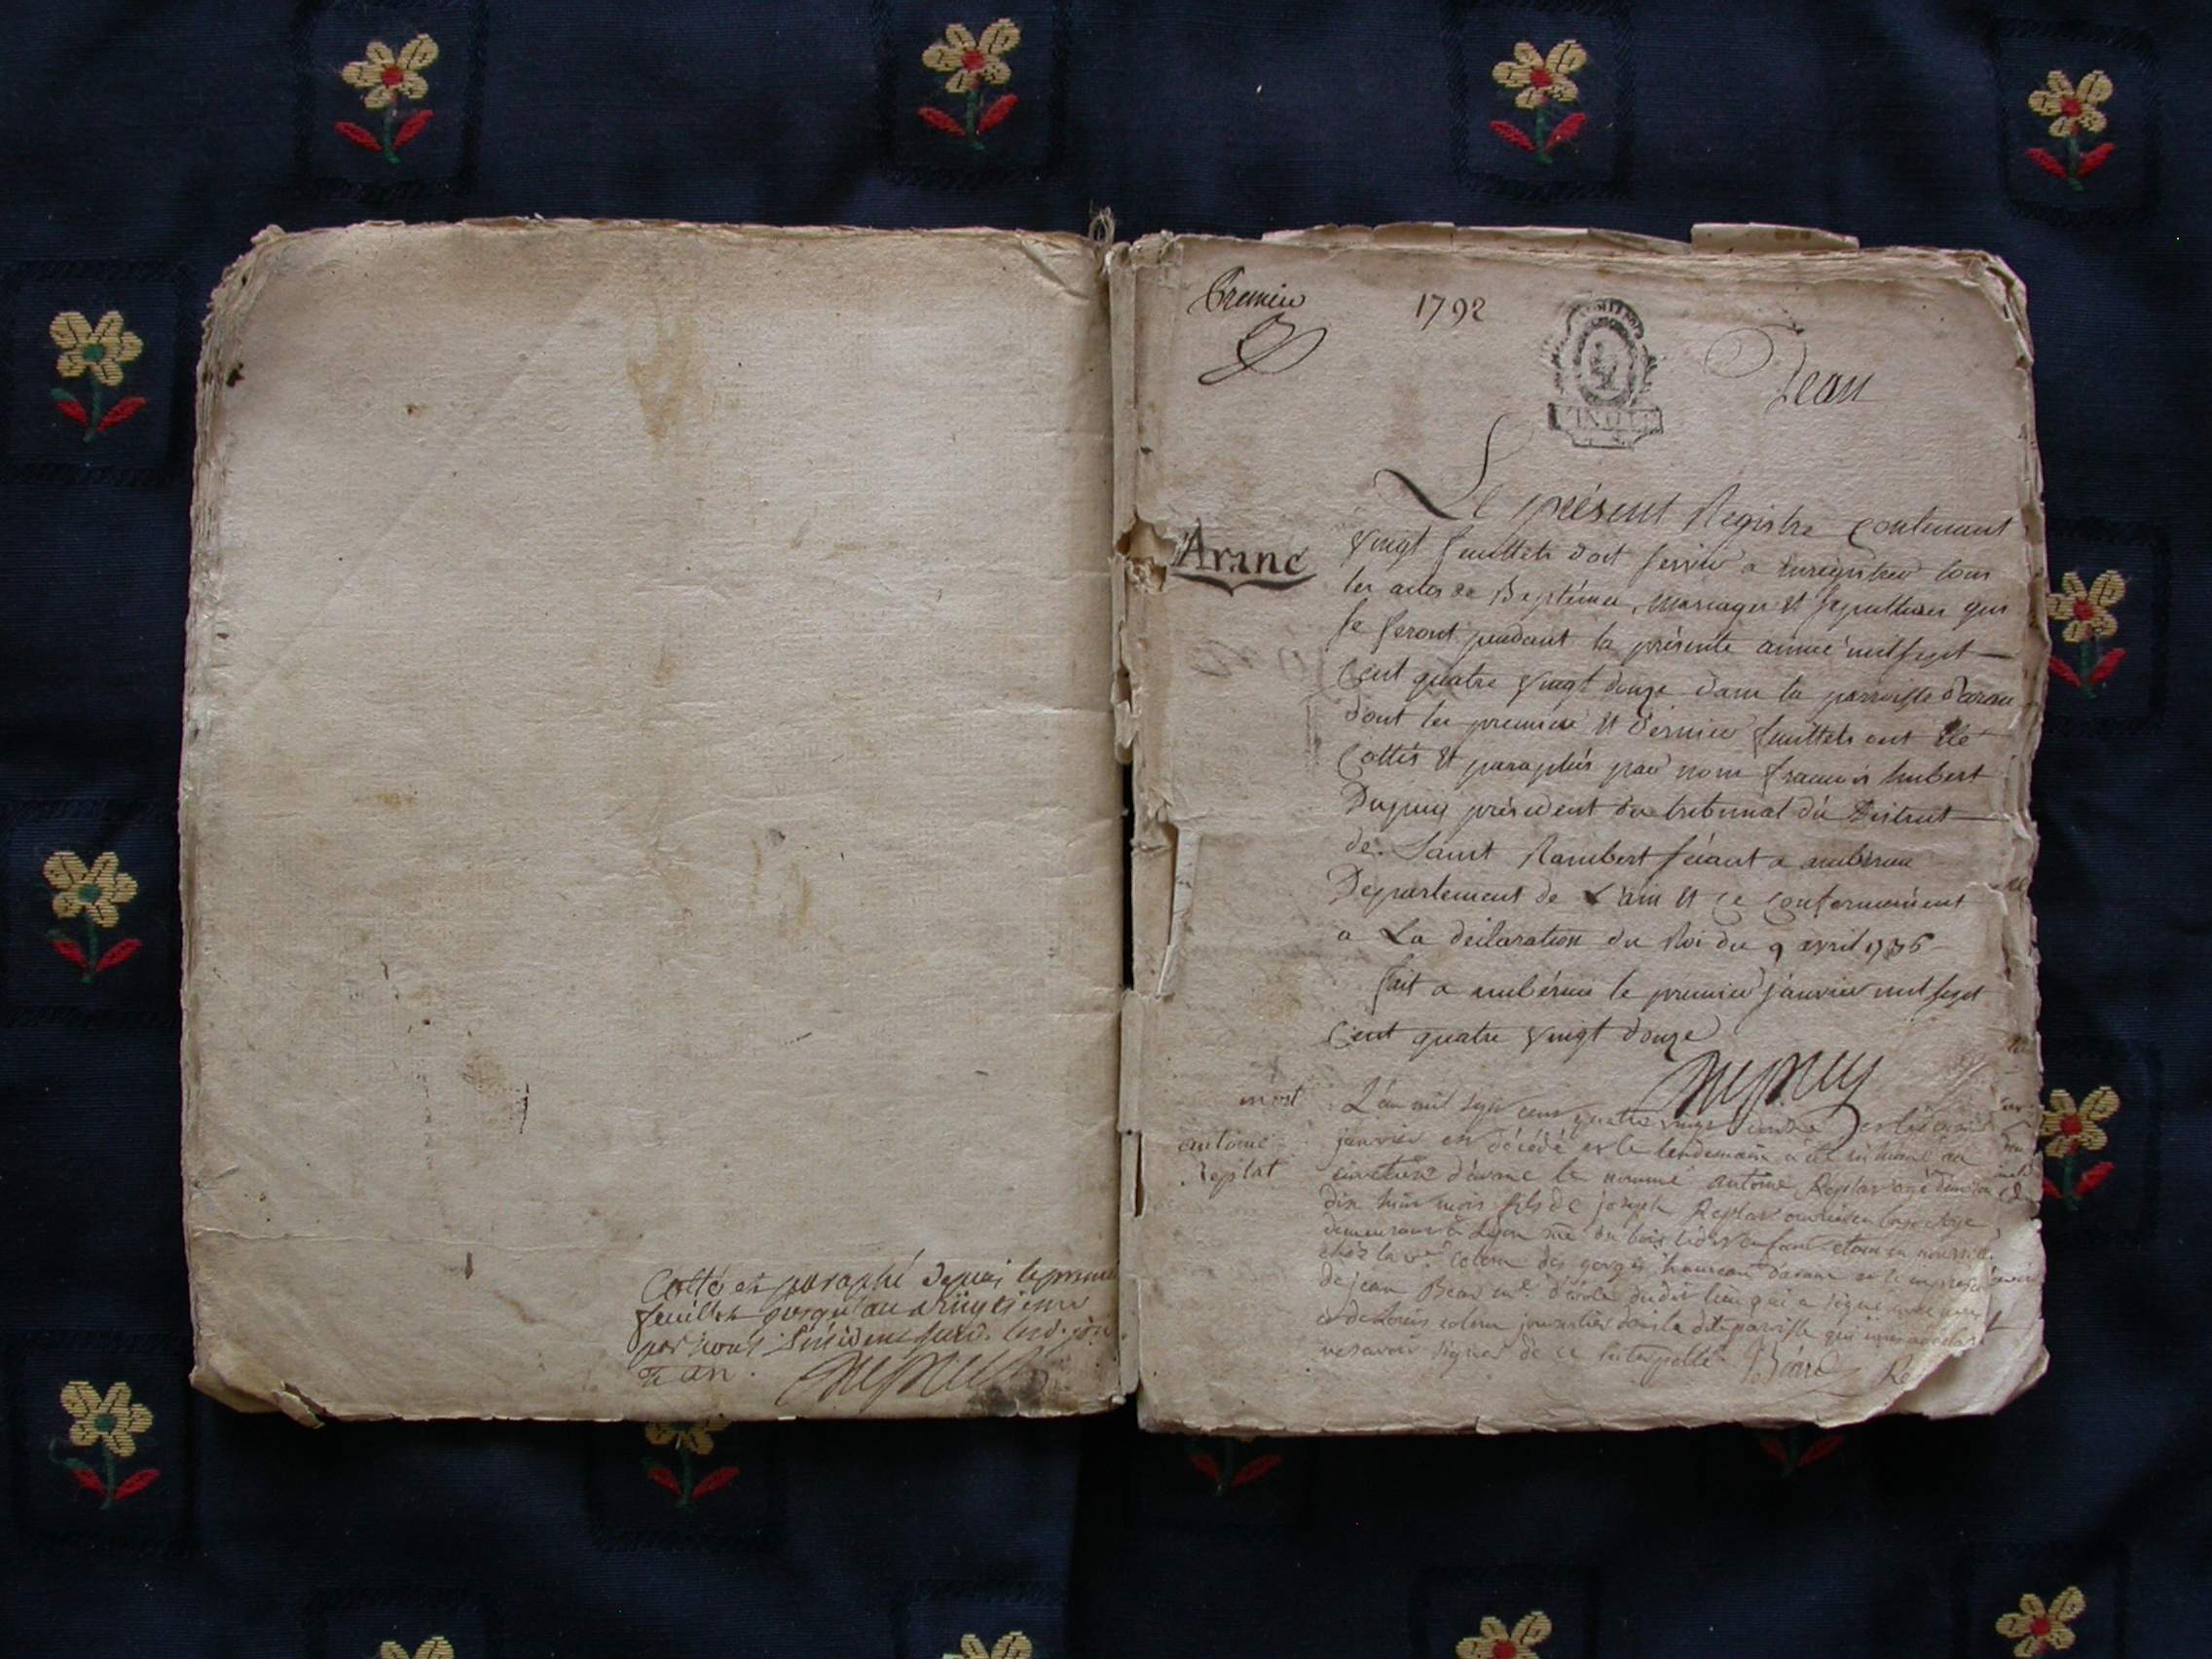 Cotté et paraphé depuis le premier
feuillet jusqu'au vingtieme
par nous président
et an.
Dupuy
Premier
1792
Jean
Aranc
Le présent Registre Contenant
vingt feuillets doit servir a Enregistrer tous
les actes de Baptémes, mariages et sepultures qui
se feront pendant la présente année mil sept
Cent quatre vingt douze dans la parroisse d'aran
dont les premier et dernier feuillets ont été
Cottés et paraphés par nous francois humbert
Dupuy président du tribunal du District
de Saint Rambert séant a ambérieu
Département de L'ain et ce Conformément
a La déclaration du Roi du 9 avril 1736
fait a ambérieu le premier janvier mil sept
Cent quatre vingt douze
Dupuy
mort
antoine
Replat
L'an mil sept cent quatre vingt douze
janvier est décédé et le lendemain a été inhumé au
cimetiere d'aranc le nommé antoine Replat agé
dix huit mois fils de joseph Replat ouvrier en
demeurant à Lyon rüe du bois enfant etant en nourrice
chéz la v.e Colom des gorges hameau d'aranc
de jean Bear m.e d'école dudit lieu qui a signé
et de Louis colom journalier dans la dite paroisse qui
ne savoir signer de ce interpellé. Béard